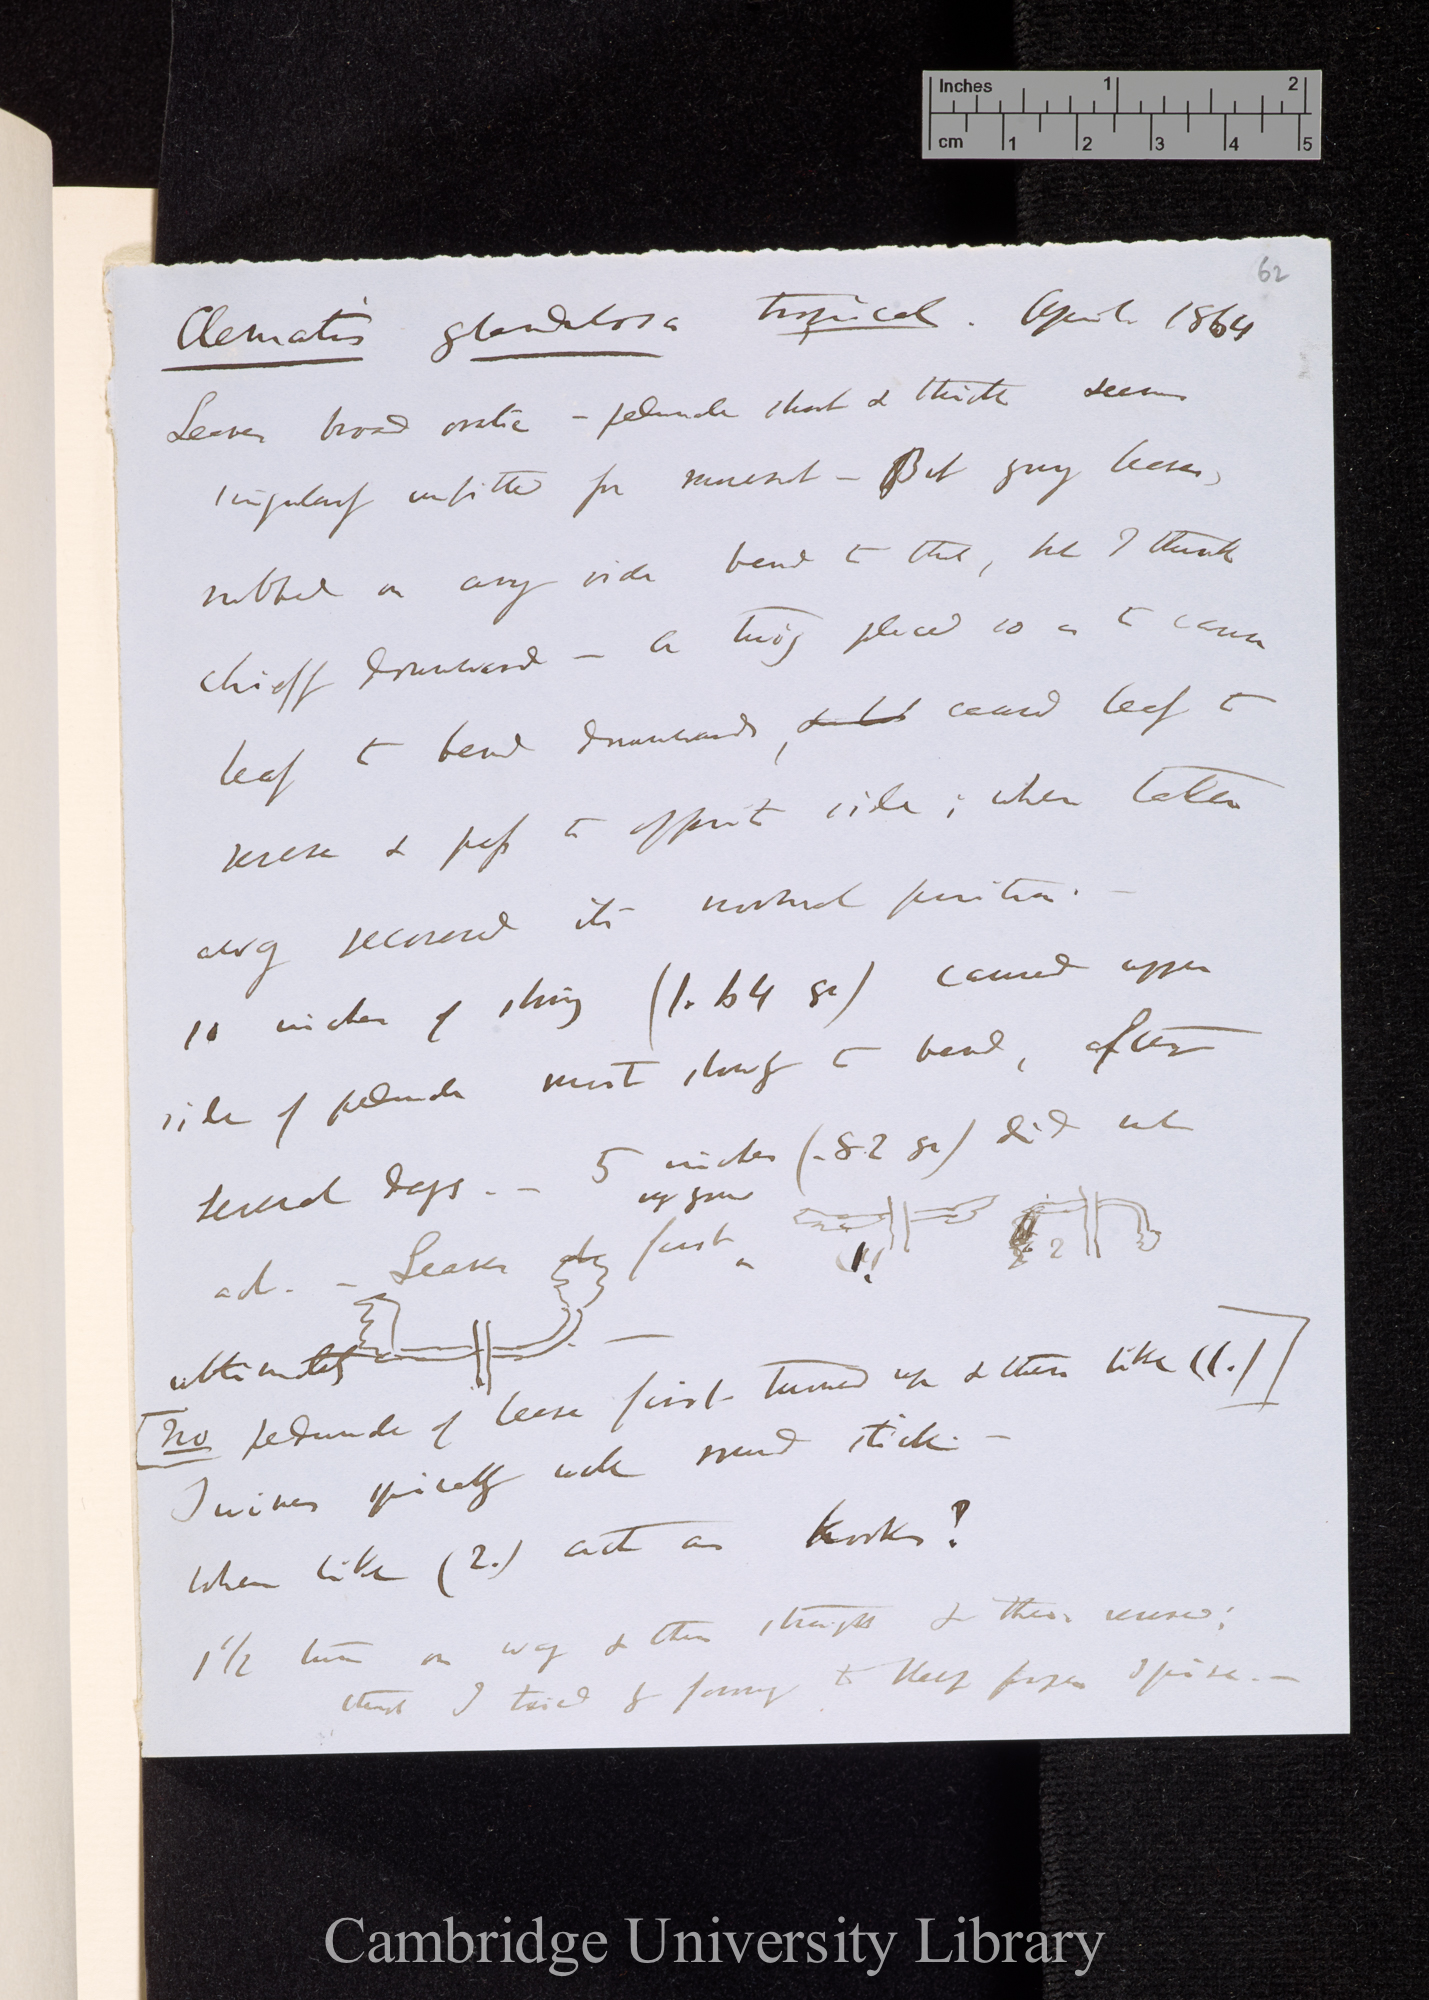 Inches 1 2
cm 1 2 3 4 5
62
Clematis glandulosa tropical. April 1864
Leaves broad ovate – peduncle short & thick seems
singularly unfitted for movement – But young leaves,
rubbed on any side bend to that, but I think
chiefly downward – A twig placed so as to cause
leaf to bend downwards, caused leaf to
reverse & pass to opposite side; when taken
away recovered its normal position. –
10 inches of string (1.64 gr) caused upper
side of peduncle most slowly to bend, after
several days. – 5 inches (.82 gr) did not
up grow
act. – Leaves first
1. 2
ultimately –
[No peduncle of leaves first turned up & then like (1.)]
Twines spirally well round stick. –
When like (2.) act as hooks!
1 1/2 turn one way & then straight & then reverse;
that I tried to keep proper spire. –
Cambridge University Library